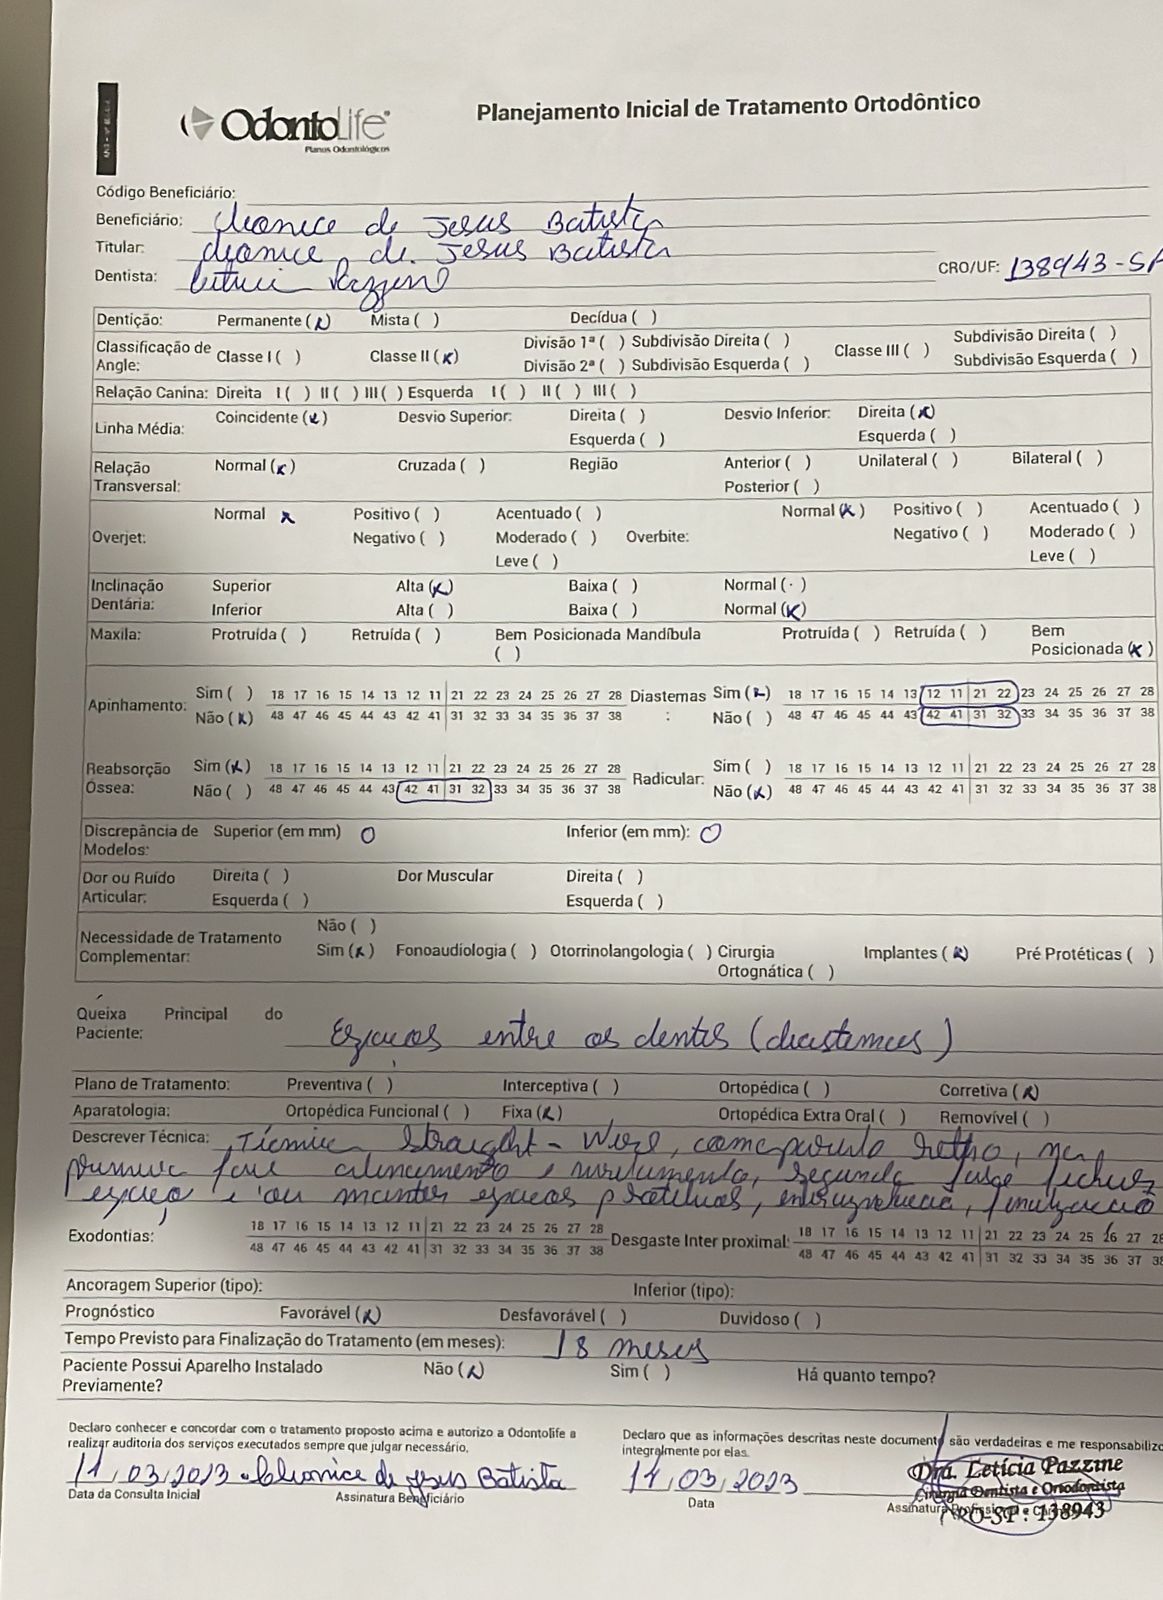 OdontoLife®
Planos Odontológicos
Planejamento Inicial de Tratamento Ortodôntico
Código Beneficiário:
Beneficiário: Cleonice de Jesus Batista
Titular: Cleonice de Jesus Batista
Dentista: Letícia Pazzine CRO/UF: 138943-SP
Dentição: Permanente (x) Mista ( ) Decídua ( )
Classificação de Angle: Classe I ( ) Classe II (x) Divisão 1ª ( ) Subdivisão Direita ( ) Classe III ( ) Subdivisão Direita ( )
Divisão 2ª ( ) Subdivisão Esquerda ( ) Subdivisão Esquerda ( )
Relação Canina: Direita I ( ) II ( ) III ( ) Esquerda I ( ) II ( ) III ( )
Linha Média: Coincidente (x) Desvio Superior: Direita ( ) Desvio Inferior: Direita (x)
Esquerda ( ) Esquerda ( )
Relação Transversal: Normal (x) Cruzada ( ) Região Anterior ( ) Unilateral ( ) Bilateral ( )
Posterior ( )
Overjet: Normal x Positivo ( ) Acentuado ( ) Overbite: Normal (x) Positivo ( ) Acentuado ( )
Negativo ( ) Moderado ( ) Negativo ( ) Moderado ( )
Leve ( ) Leve ( )
Inclinação Dentária: Superior Alta (x) Baixa ( ) Normal ( )
Inferior Alta ( ) Baixa ( ) Normal (x)
Maxila: Protruída ( ) Retruída ( ) Bem Posicionada ( ) Mandíbula Protruída ( ) Retruída ( ) Bem Posicionada (x)
Apinhamento: Sim ( ) 18 17 16 15 14 13 12 11 21 22 23 24 25 26 27 28 Diastemas: Sim (x) 18 17 16 15 14 13 12 11 21 22 23 24 25 26 27 28
Não (x) 48 47 46 45 44 43 42 41 31 32 33 34 35 36 37 38 Não ( ) 48 47 46 45 44 43 42 41 31 32 33 34 35 36 37 38
Reabsorção Óssea: Sim (x) 18 17 16 15 14 13 12 11 21 22 23 24 25 26 27 28 Radicular: Sim ( ) 18 17 16 15 14 13 12 11 21 22 23 24 25 26 27 28
Não ( ) 48 47 46 45 44 43 42 41 31 32 33 34 35 36 37 38 Não (x) 48 47 46 45 44 43 42 41 31 32 33 34 35 36 37 38
Discrepância de Modelos: Superior (em mm) 0 Inferior (em mm): 0
Dor ou Ruído Articular: Direita ( ) Dor Muscular Direita ( )
Esquerda ( ) Esquerda ( )
Necessidade de Tratamento Complementar: Não ( )
Sim (x) Fonoaudiologia ( ) Otorrinolangologia ( ) Cirurgia Ortognática ( ) Implantes (x) Pré Protéticas ( )
Queixa Principal do Paciente: Espaços entre os dentes (diastemas)
Plano de Tratamento: Preventiva ( ) Interceptiva ( ) Ortopédica ( ) Corretiva (x)
Aparatologia: Ortopédica Funcional ( ) Fixa (x) Ortopédica Extra Oral ( ) Removível ( )
Descrever Técnica: Técnica Straight-Wire, na
primeira fase alinhamento e nivelamento, segunda fase fechar
espaço e ou manter espaços protéticos, intercuspidação, finalização
Exodontias: 18 17 16 15 14 13 12 11 21 22 23 24 25 26 27 28 Desgaste Inter proximal: 18 17 16 15 14 13 12 11 21 22 23 24 25 26 27 28
48 47 46 45 44 43 42 41 31 32 33 34 35 36 37 38 48 47 46 45 44 43 42 41 31 32 33 34 35 36 37 38
Ancoragem Superior (tipo): Inferior (tipo):
Prognóstico Favorável (x) Desfavorável ( ) Duvidoso ( )
Tempo Previsto para Finalização do Tratamento (em meses): 18 meses
Paciente Possui Aparelho Instalado Previamente? Não (x) Sim ( ) Há quanto tempo?
Declaro conhecer e concordar com o tratamento proposto acima e autorizo a Odontolife a
realizar auditoria dos serviços executados sempre que julgar necessário.
Declaro que as informações descritas neste documento são verdadeiras e me responsabilizo
integralmente por elas.
11/03/2023 Cleonice de Jesus Batista
Data da Consulta Inicial Assinatura Beneficiário
11/03/2023
Data
Dra. Letícia Pazzine
Cirurgiã Dentista e Ortodontista
CRO-SP: 138943